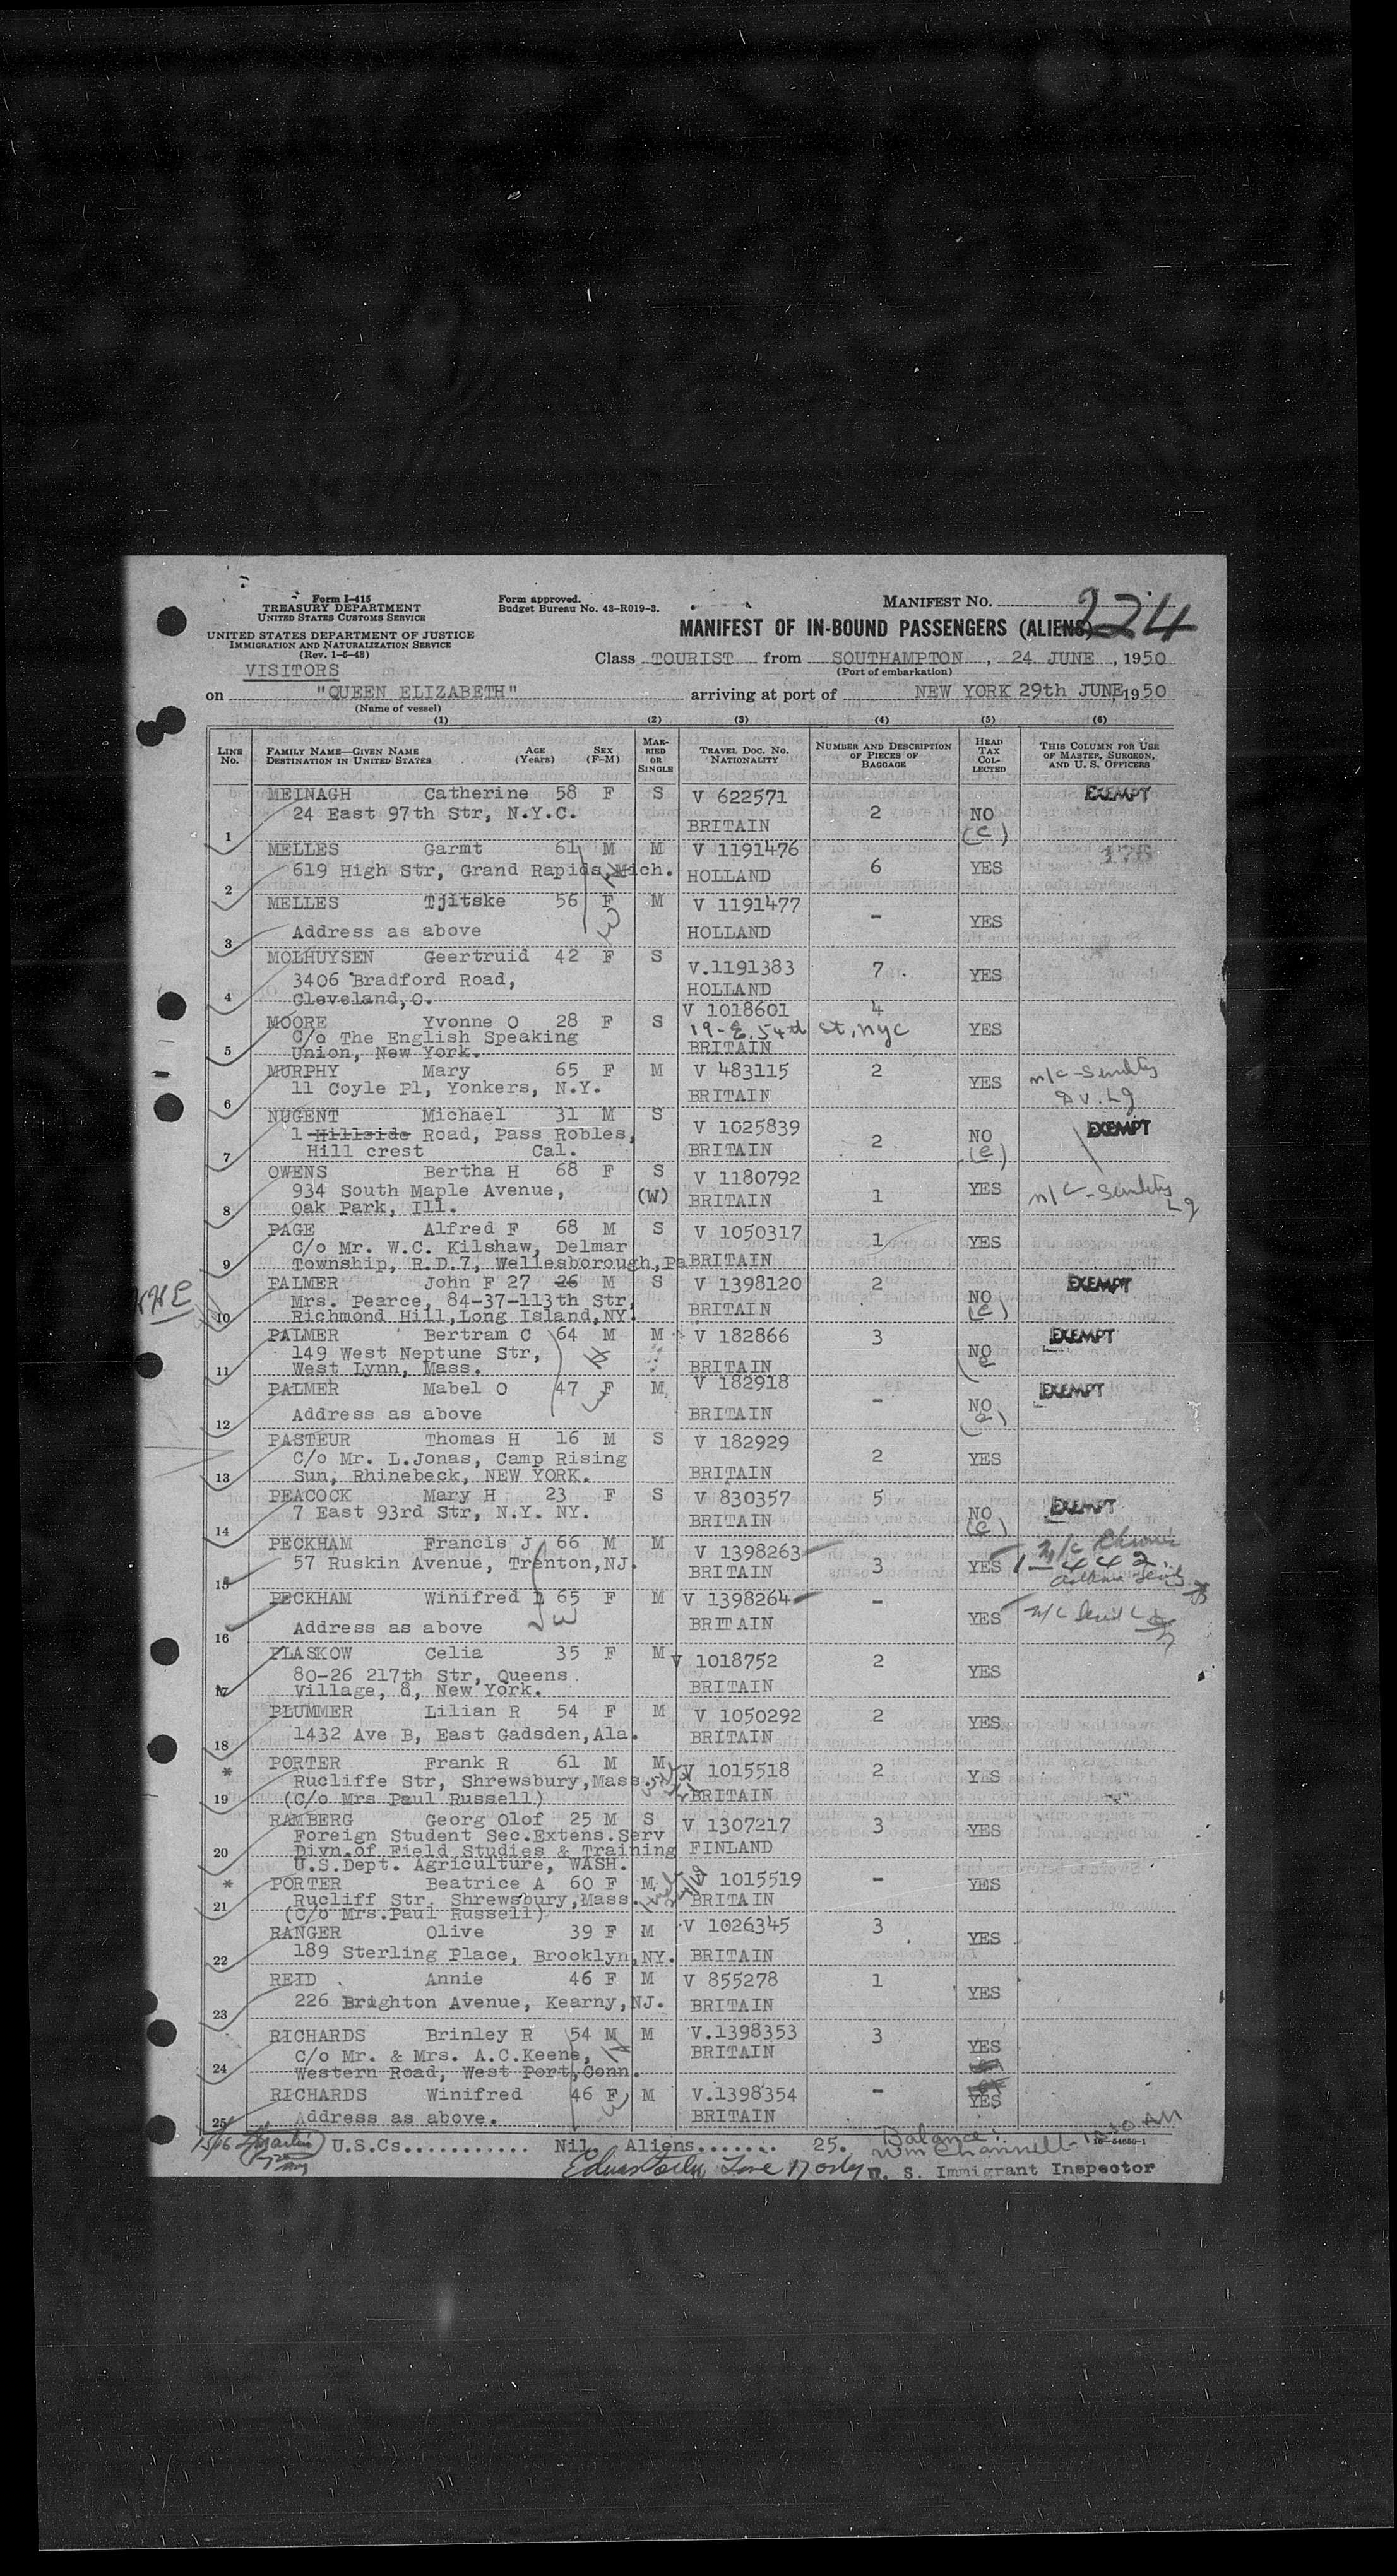 Form I-415
TREASURY DEPARTMENT
UNITED STATES CUSTOMS SERVICE
UNITED STATES DEPARTMENT OF JUSTICE
IMMIGRATION AND NATURALIZATION SERVICE
(Rev. 1-5-48)
VISITORS
Form approved.
Budget Bureau No. 43-R019-3.
MANIFEST NO. 224
MANIFEST OF IN-BOUND PASSENGERS (ALIENS)
Class TOURIST from SOUTHAMPTON, 24 JUNE, 1950
(Port of embarkation)
on "QUEEN ELIZABETH" arriving at port of NEW YORK 29th JUNE, 1950
(Name of vessel)
(1) (2) (3) (4) (5) (6)
LINE No. FAMILY NAME—GIVEN NAME DESTINATION IN UNITED STATES AGE (Years) SEX (F-M) MARRIED OR SINGLE TRAVEL DOC. NO. NATIONALITY NUMBER AND DESCRIPTION OF PIECES OF BAGGAGE HEAD TAX COLLECTED THIS COLUMN FOR USE OF MASTER, SURGEON, AND U. S. OFFICERS
1 MEINAGH Catherine 58 F S V 622571 2 NO (c) EXEMPT
24 East 97th Str, N.Y.C. BRITAIN
2 MELLES Garmt 61 M M V 1191476 6 YES 178
619 High Str, Grand Rapids, Mich. HOLLAND
3 MELLES Tjitske 56 F M V 1191477 - YES
Address as above HOLLAND
4 MOLHUYSEN Geertruid 42 F S V.1191383 7 YES
3406 Bradford Road, HOLLAND
Cleveland, O.
5 MOORE Yvonne O 28 F S V 1018601 4 YES
C/o The English Speaking 19-E. 54th St, nyc
Union, New York. BRITAIN
6 MURPHY Mary 65 F M V 483115 2 YES m/c-Senility
11 Coyle Pl, Yonkers, N.Y. BRITAIN
7 NUGENT Michael 31 M S V 1025839 2 NO (e) EXEMPT
1 Hillside Road, Pass Robles,
Hill crest Cal. BRITAIN
8 OWENS Bertha H 68 F S (W) V 1180792 1 YES m/c-Senility
934 South Maple Avenue, BRITAIN
Oak Park, Ill.
9 PAGE Alfred F 68 M S V 1050317 1 YES
C/o Mr. W.C. Kilshaw, Delmar
Township, R.D.7, Wellesborough, Pa BRITAIN
HHE
10 PALMER John F 27 26 M S V 1398120 2 NO (e) EXEMPT
Mrs. Pearce, 84-37-113th Str, BRITAIN
Richmond Hill, Long Island, NY.
11 PALMER Bertram C 64 M M V 182866 3 NO e EXEMPT
149 West Neptune Str,
West Lynn, Mass. BRITAIN
12 PALMER Mabel O 47 F M V 182918 - NO (e) EXEMPT
Address as above BRITAIN
13 PASTEUR Thomas H 16 M S V 182929 2 YES
C/o Mr. L.Jonas, Camp Rising
Sun, Rhinebeck, NEW YORK. BRITAIN
14 PEACOCK Mary H 23 F S V 830357 5 NO (e) EXEMPT
7 East 93rd Str, N.Y. NY. BRITAIN
15 PECKHAM Francis J 66 M M V 1398263 3 YES m/c Chronic
57 Ruskin Avenue, Trenton, NJ. BRITAIN
16 PECKHAM Winifred 65 F M V 1398264 - YES
Address as above BRITAIN
17 PLASKOW Celia 35 F M V 1018752 2 YES
80-26 217th Str, Queens
Village, 8, New York. BRITAIN
18 PLUMMER Lilian R 54 F M V 1050292 2 YES
1432 Ave B, East Gadsden, Ala. BRITAIN
* 19 PORTER Frank R 61 M M V 1015518 2 YES
Rucliffe Str, Shrewsbury, Mass. BRITAIN
(C/o Mrs Paul Russell)
20 RAMBERG Georg Olof 25 M S V 1307217 3 YES
Foreign Student Sec.Extens.Serv
Divn.of Field Studies & Training FINLAND
U.S.Dept. Agriculture, WASH.
* 21 PORTER Beatrice A 60 F M V 1015519 - YES
Rucliff Str. Shrewsbury, Mass. BRITAIN
(C/o Mrs.Paul Russell)
22 RANGER Olive 39 F M V 1026345 3 YES
189 Sterling Place, Brooklyn, NY. BRITAIN
23 REID Annie 46 F M V 855278 1 YES
226 Brighton Avenue, Kearny, NJ. BRITAIN
24 RICHARDS Brinley R 54 M M V.1398353 3 YES
C/o Mr. & Mrs. A.C.Keene, BRITAIN
Western Road, West Port, Conn.
25 RICHARDS Winifred 46 F M V.1398354 - YES
Address as above. BRITAIN
15/16 U.S.Cs........... Nil. Aliens....... 25. Balance:
16-54650-1
Line 17 only U. S. Immigrant Inspector